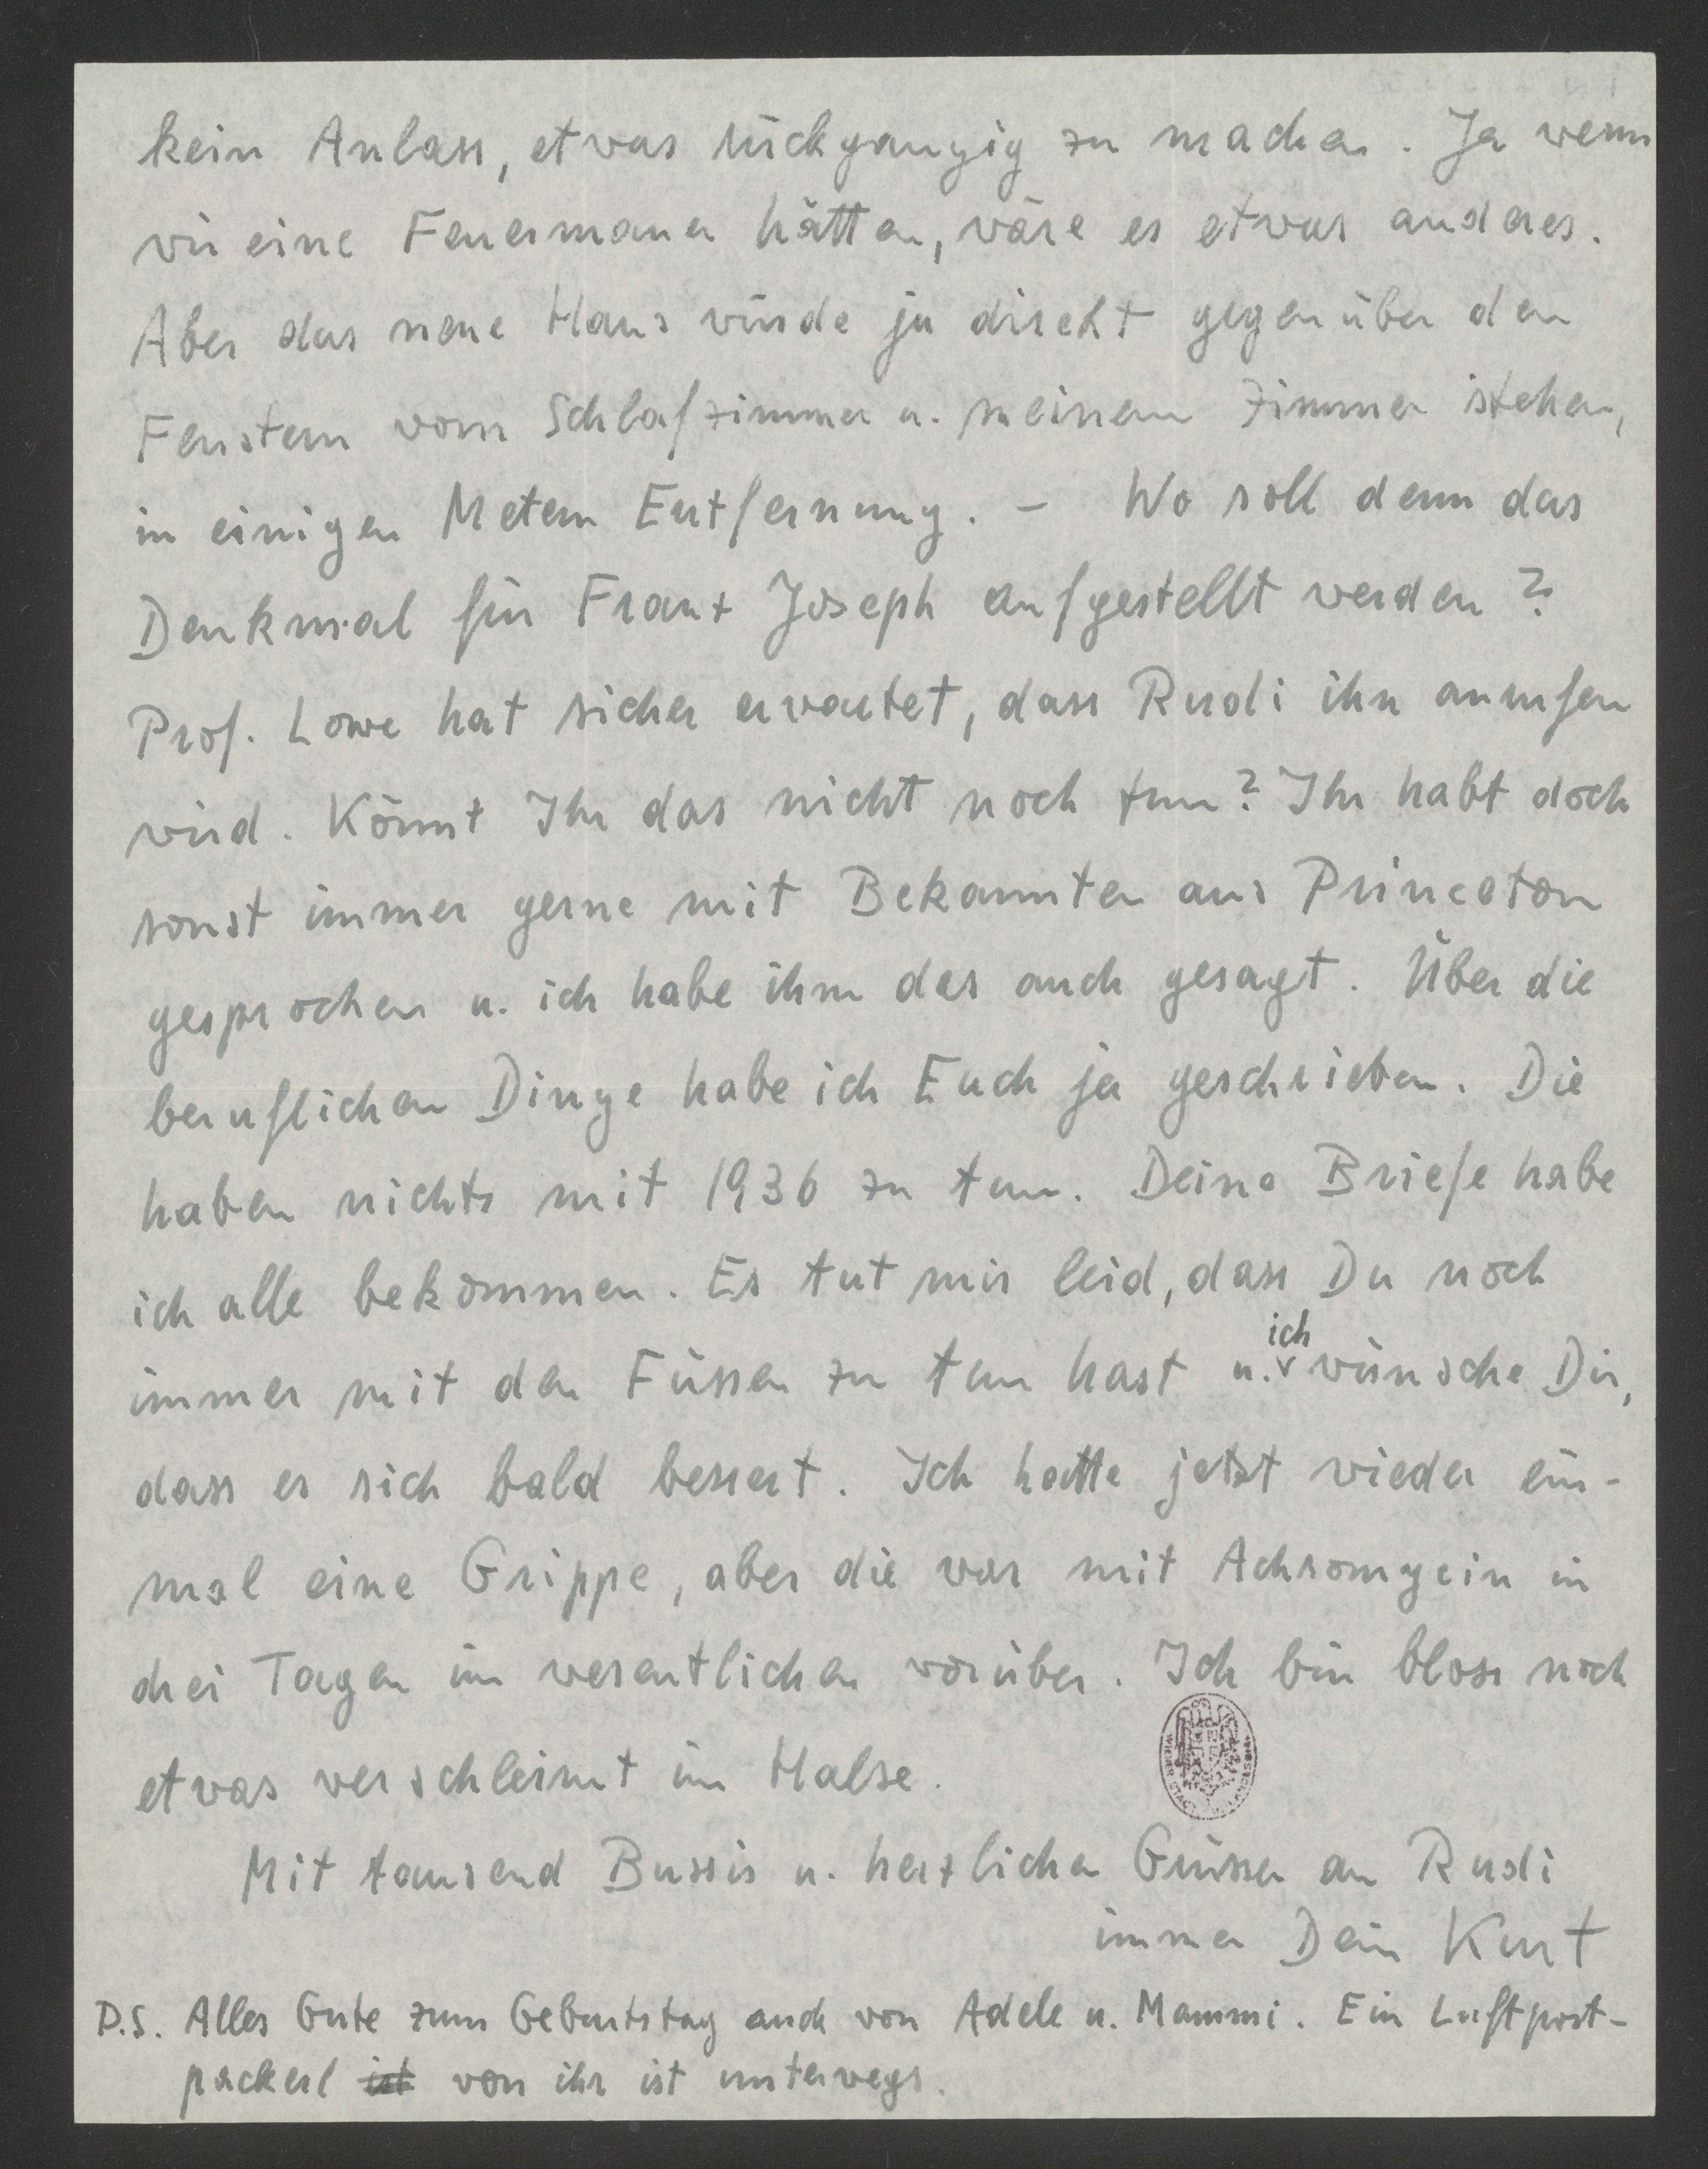 kein Anlass, etwas rückgängig zu machen. Ja wenn
wir eine Feuermauer hätten, wäre es etwas anderes.
Aber das neue Haus würde ja direkt gegenüber den
Fenstern vom Schlafzimmer u. meinem Zimmer stehen,
in einigen Metern Entfernung. – Wo soll denn das
Denkmal für Franz Joseph aufgestellt werden?
Prof. Lowe hat sicher erwartet, dass Rudi ihn anrufen
wird. Könnt Ihr das nicht noch tun? Ihr habt doch
sonst immer gerne mit Bekannten aus Princeton
gesprochen u. ich habe ihm das auch gesagt. Über die
beruflichen Dinge habe ich Euch ja geschrieben. Die
haben nichts mit 1936 zu tun. Deine Briefe habe
ich alle bekommen. Es tut mir leid, dass Du noch
immer mit den Füssen zu tun hast u. ich wünsche Dir,
dass es sich bald bessert. Ich hatte jetzt wieder ein-
mal eine Grippe, aber die war mit Achromycin in
drei Tagen im wesentlichen vorüber. Ich bin bloss noch
etwas verschleimt im Halse.
Mit tausend Bussis u. herzlichen Grüssen an Rudi
immer Dein Kurt
P.S. Alles Gute zum Geburtstag auch von Adele u. Mammi. Ein Luftpost-
packerl ist von ihr ist unterwegs.